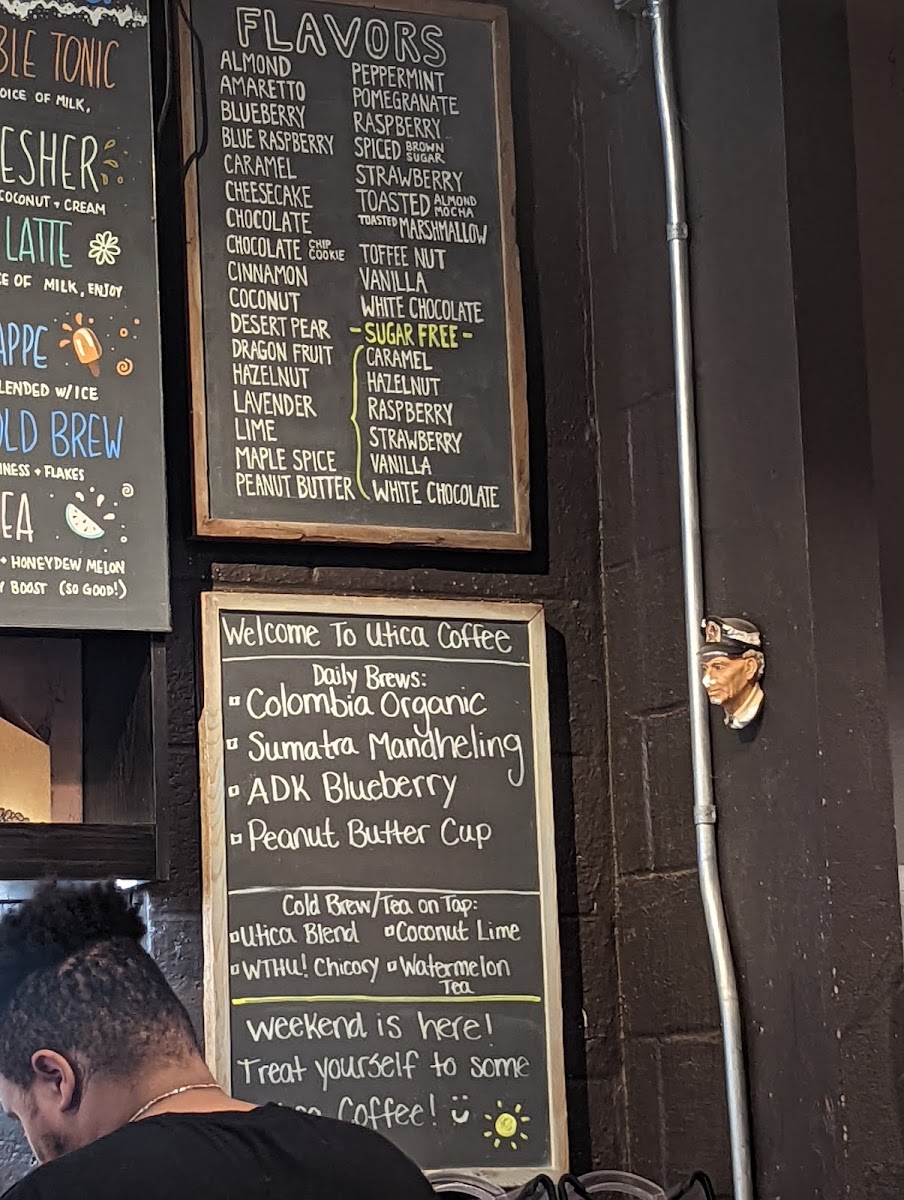 TONIC
OICE OF MILK,
COCONUT + CREAM
LATTE
OF MILK, ENJOY
W/ICE
BREW
+ FLAKES
+ HONEYDEW MELON
BOOST (SO GOOD!)
FLAVORS
ALMOND
AMARETTO
BLUEBERRY
BLUE RASPBERRY
CARAMEL
CHEESECAKE
CHOCOLATE
CHOCOLATE CHIP COOKIE
CINNAMON
COCONUT
DESERT PEAR
DRAGON FRUIT
HAZELNUT
LAVENDER
LIME
MAPLE SPICE
PEANUT BUTTER
PEPPERMINT
POMEGRANATE
RASPBERRY
SPICED BROWN SUGAR
STRAWBERRY
TOASTED ALMOND MOCHA
TOASTED MARSHMALLOW
TOFFEE NUT
VANILLA
WHITE CHOCOLATE
- SUGAR FREE -
CARAMEL
HAZELNUT
RASPBERRY
STRAWBERRY
VANILLA
WHITE CHOCOLATE
Welcome To Utica Coffee
Daily Brews:
Colombia Organic
Sumatra Mandheling
ADK Blueberry
Peanut Butter Cup
Cold Brew/Tea on Tap:
Utica Blend
Coconut Lime
WTHU! Chicory
Watermelon
Tea
Weekend is here!
Treat yourself to some
Coffee!